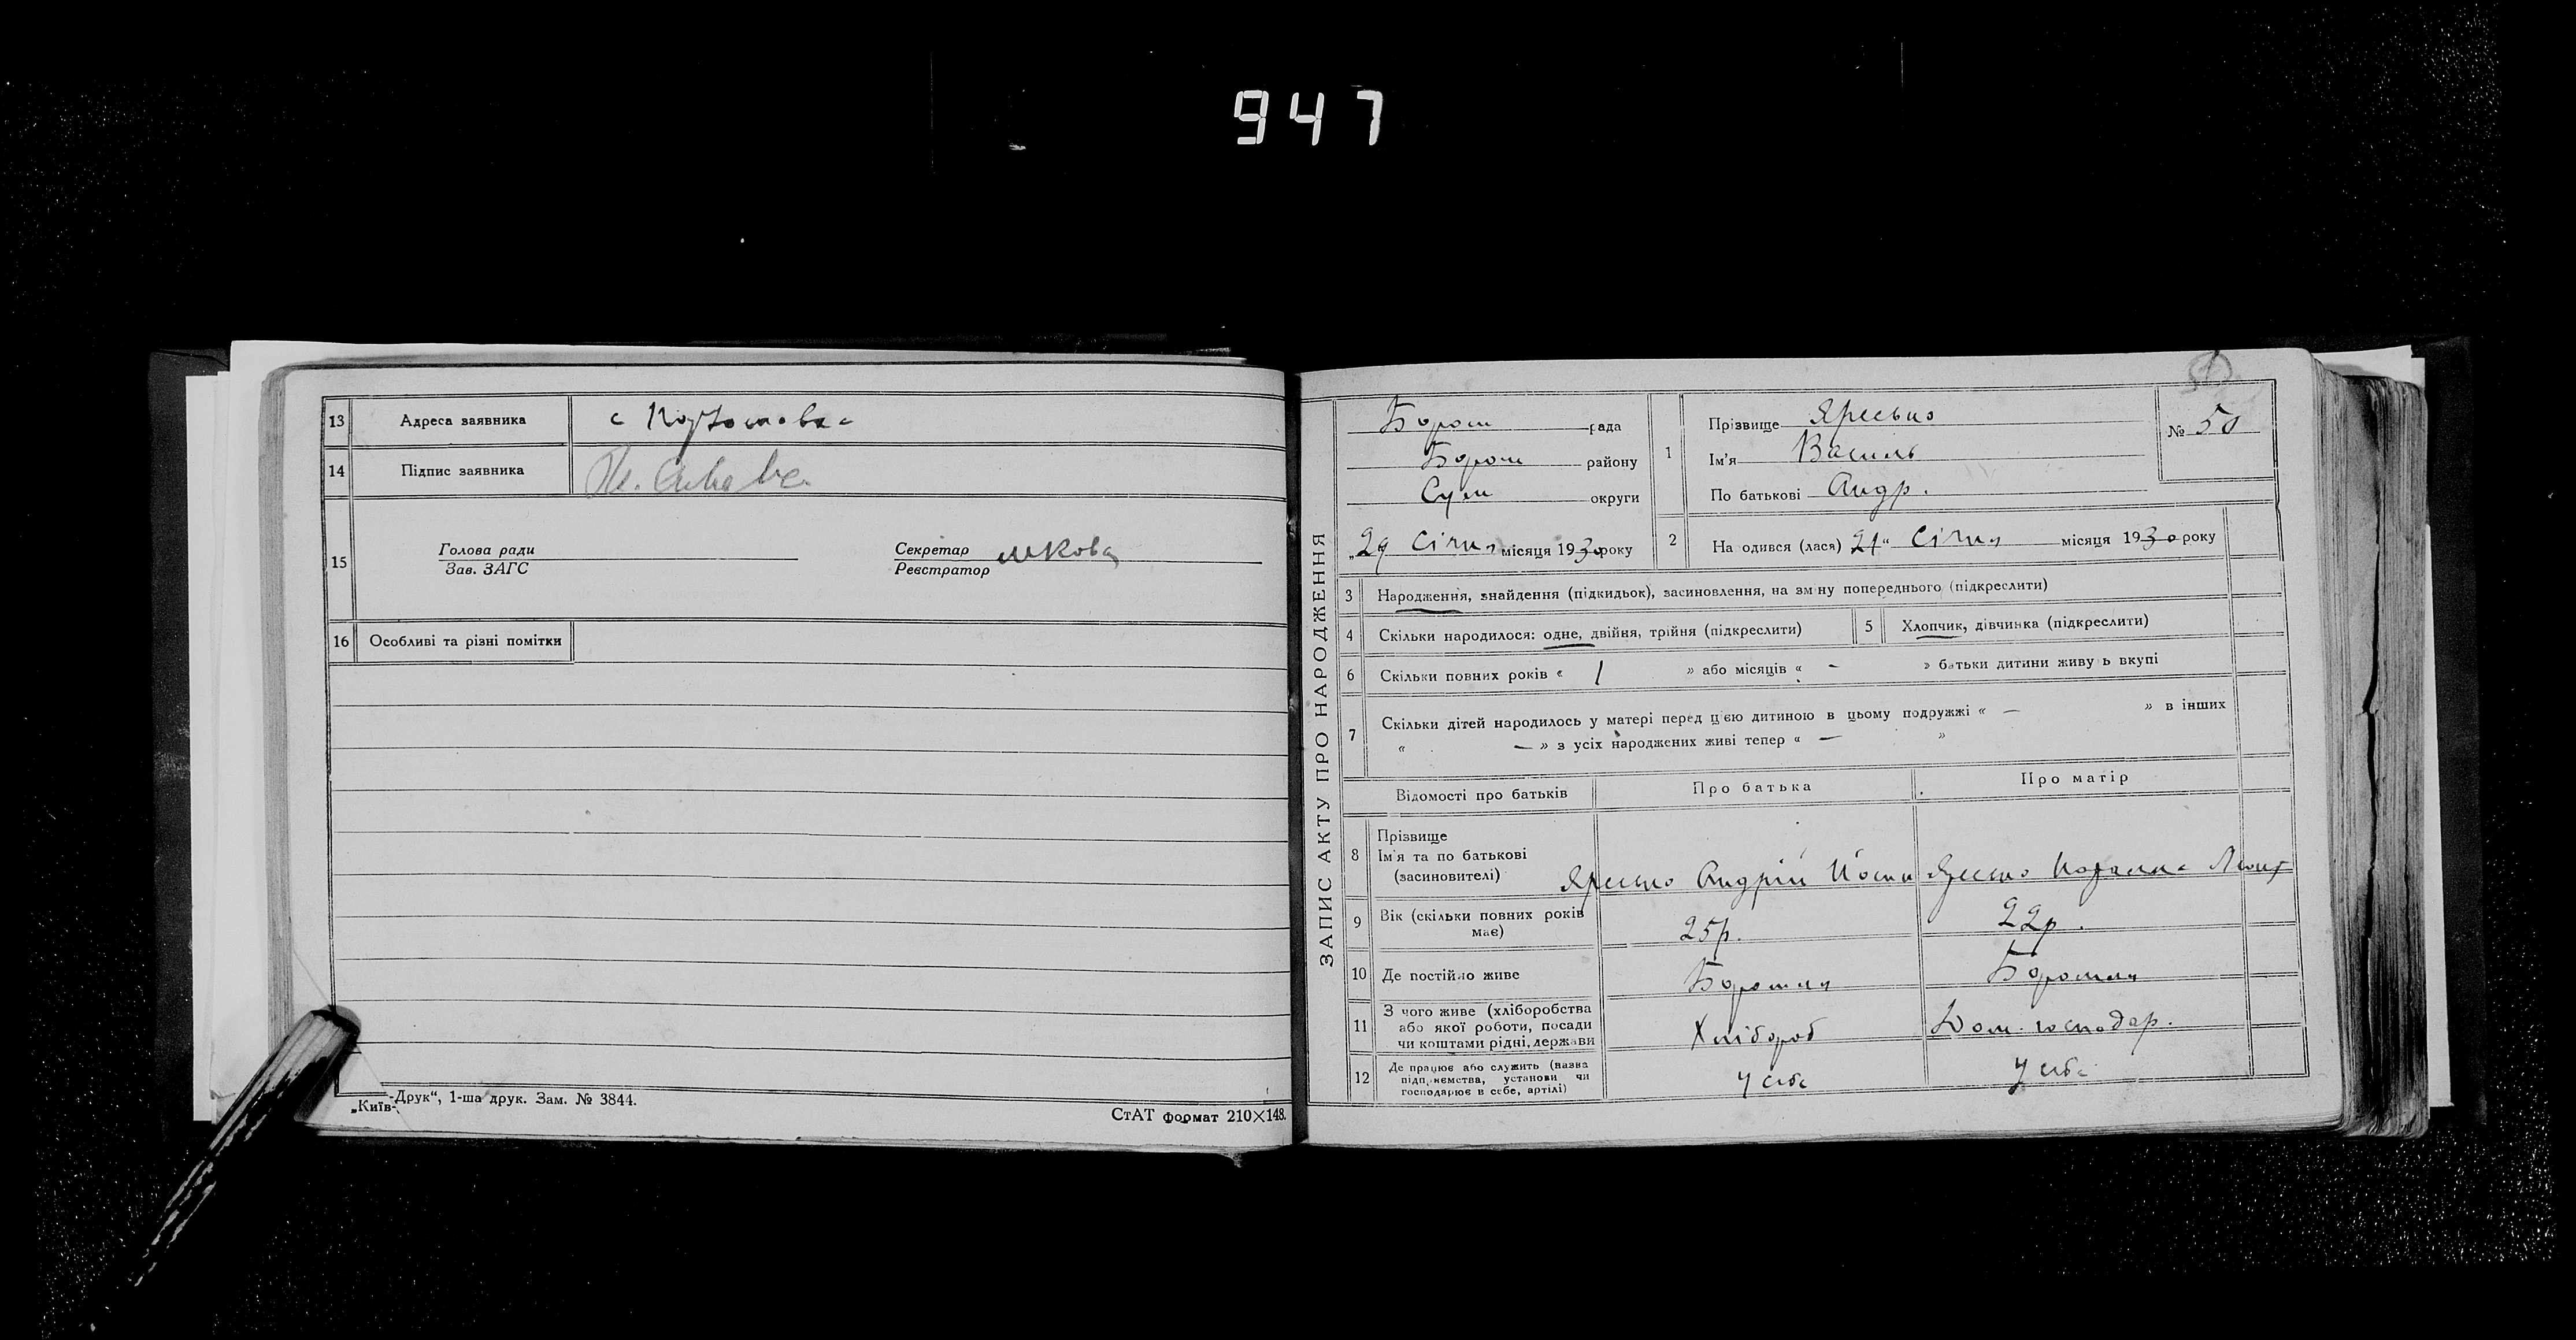 947
13 Адреса заявника с
14 Підпис заявника
15 Голова ради
Зав. ЗАГС
Секретар
Реєстратор
16 Особливі та різні помітки
„Київ-Друк“, 1-ша друк. Зам. № 3844.
СтАТ формат 210×148.
ЗАПИС АКТУ ПРО НАРОДЖЕННЯ
Бором рада
Бором району
Сум округи
„29 Січня місяця 1930 року
1 Прізвище Яресько
Ім'я Василь
По батькові Андр.
№ 50
2 На одився (лася) 21“ Січня місяця 1930 року
3 Народження, знайдення (підкидьок), засиновлення, на зміну попереднього (підкреслити)
4 Скільки народилося: одне, двійня, трійня (підкреслити)
5 Хлопчик, дівчинка (підкреслити)
6 Скільки повних років « 1 » або місяців « - » батьки дитини живу ь вкупі
7 Скільки дітей народилось у матері перед цією дитиною в цьому подружжі « — » в інших
« — » з усіх народжених живі тепер « — »
Відомості про батьків Про батька Про матір
8 Прізвище
Ім'я та по батькові
(засиновителі) Яресько Андрій Йосип Яресько
9 Вік (скільки повних років
має) 25р. 22р.
10 Де постійно живе Боромля Боромля
11 З чого живе (хліборобства
або якої роботи, посади
чи коштами рідні, держави Хлібороб Дом. господар.
12 Де працює або служить (назва
підприємства, установи чи
господарює в себе, артілі) У себе У себе